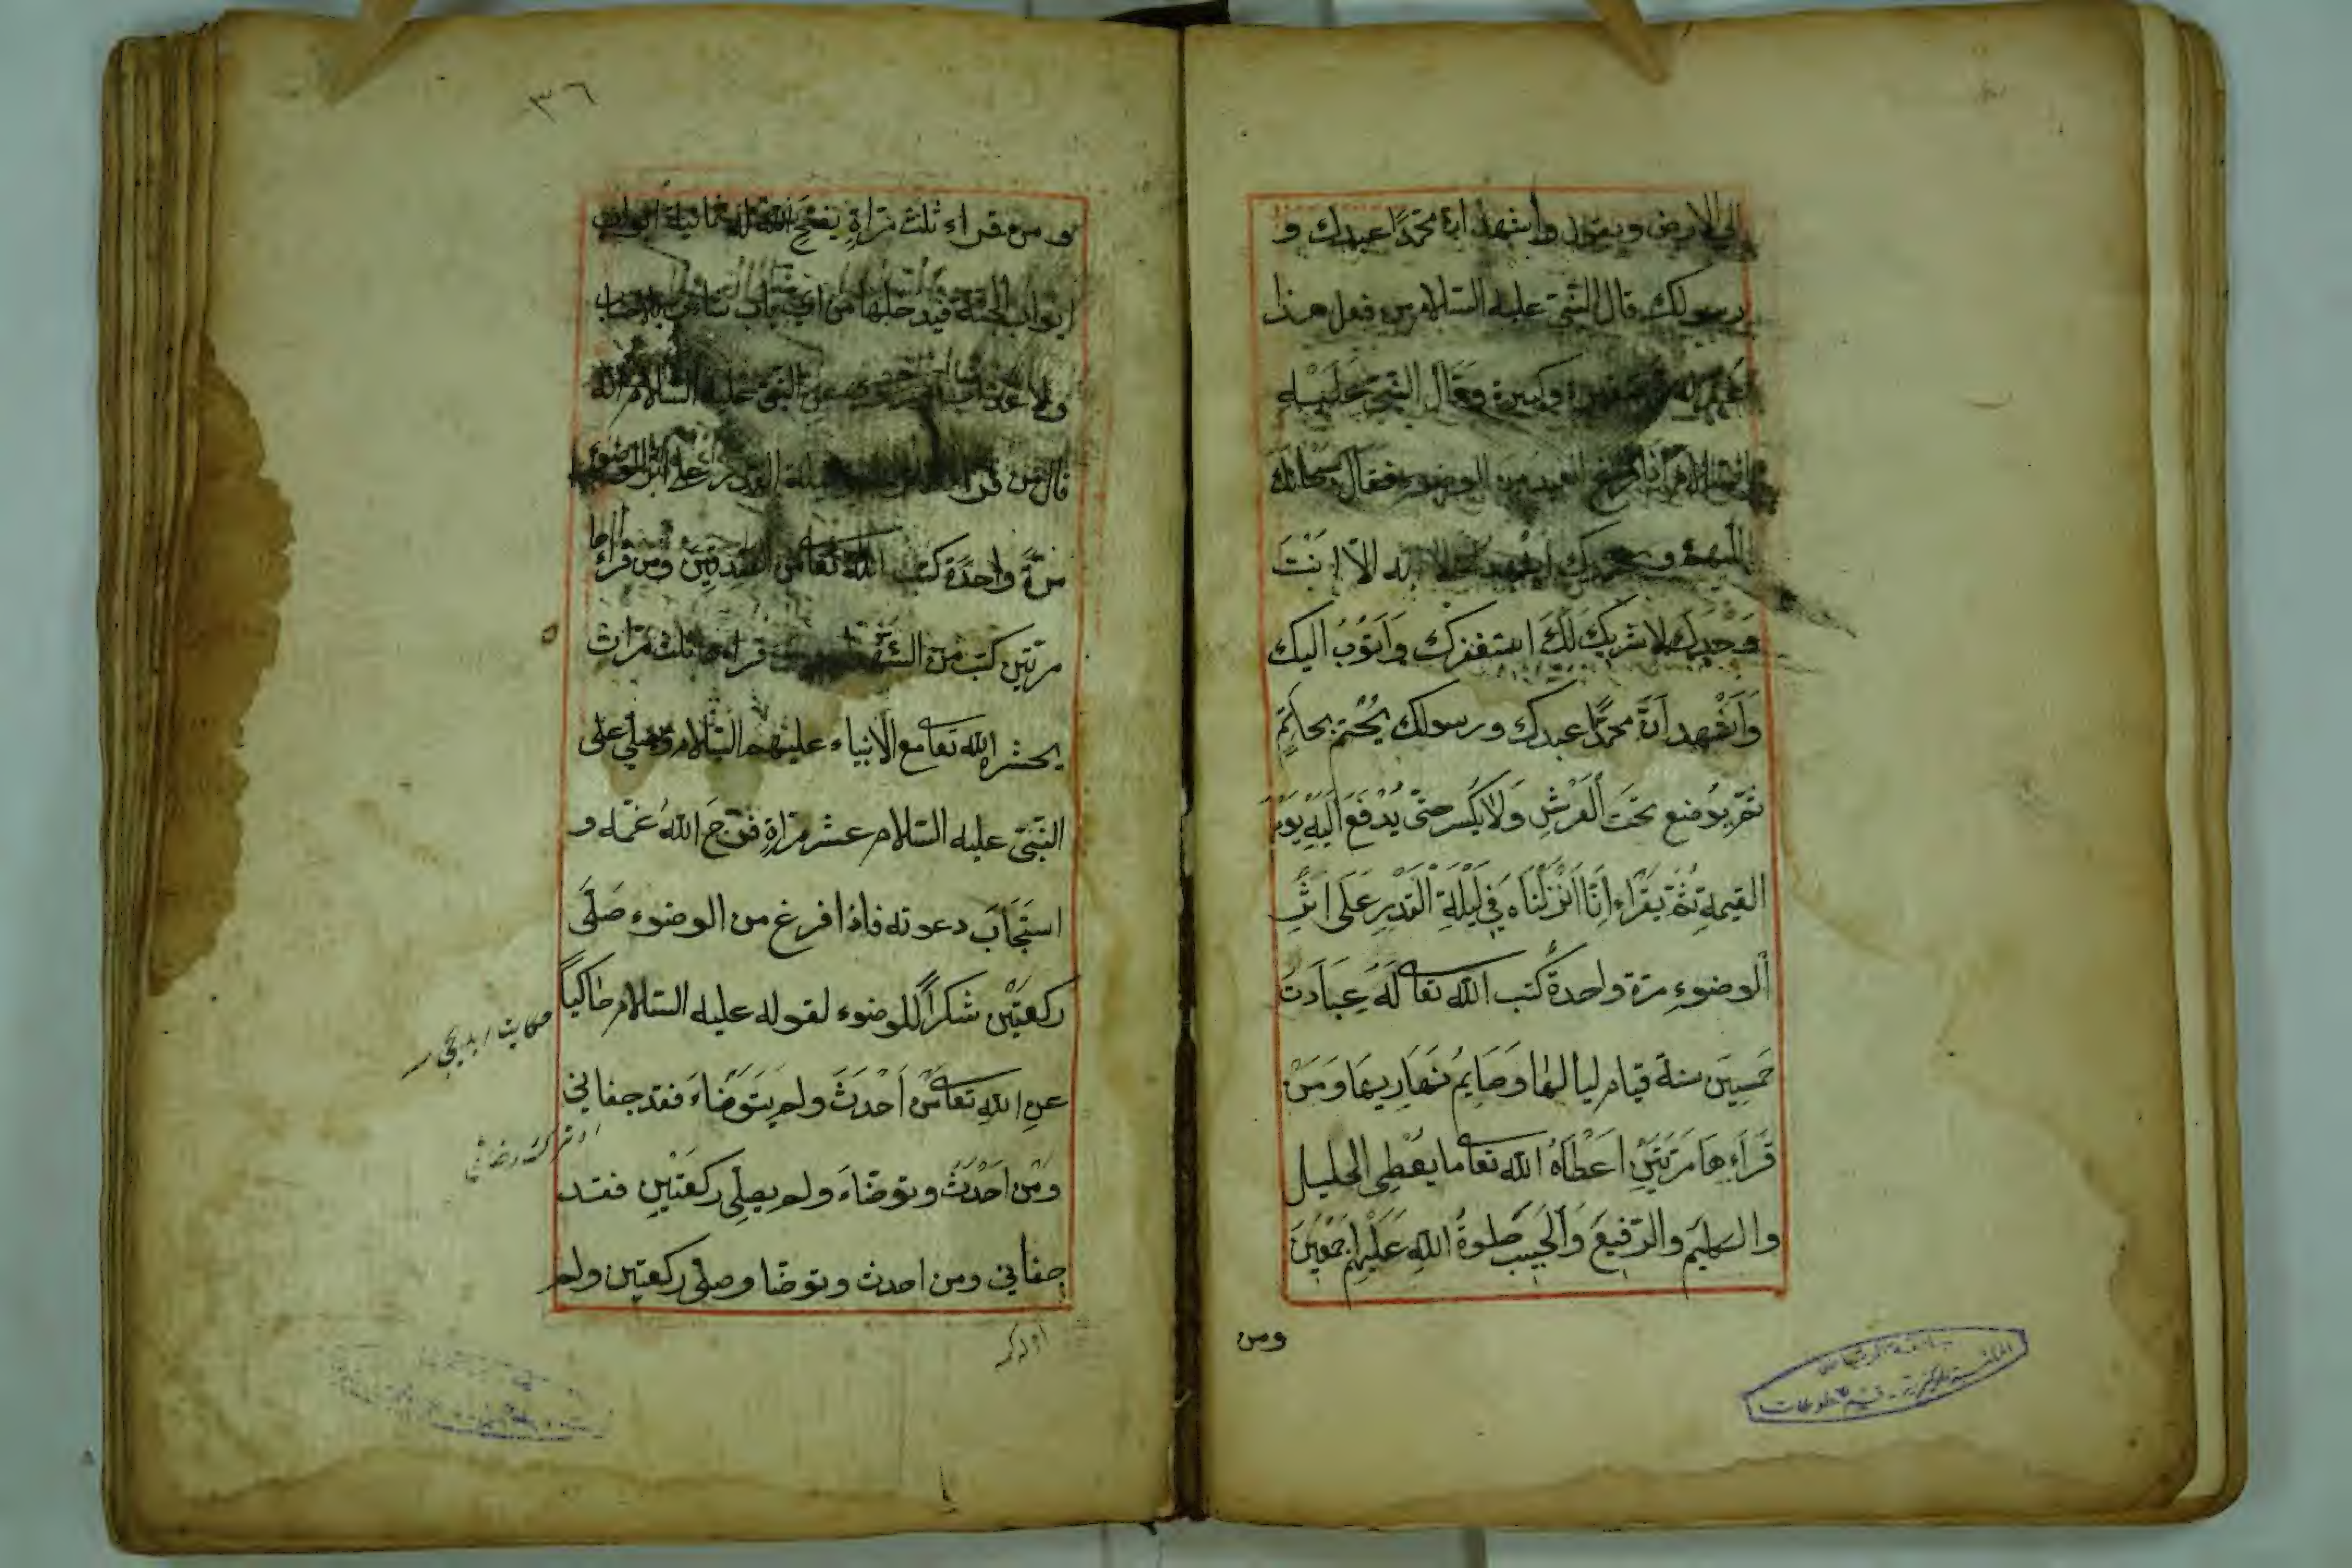 الى الارض ويقول واشهد ان محمدًا عبدك و
رسولك قال النبى عليه السلام من فعل هذا
غفر له صغيرة وكبيرة وقال النبى عَلَيْه
السلام اذا فرغ العبد من الوضوء فقال سبحانك
اللهم وبحمدك اشهد ان لا اله الّا اَنْتَ
وَحْدَك لا شريكَ لَكَ استغفرك وَاَتوُبُ اليك
وَاَشْهد اَنّ محمدًا عبدك ورسولك يُخْتم بخاتمٍ
ثمّ يوُضع تحَتَ اَلعَرْشِ وَلا يَكسر حتىّ يُدْفَعَ اِلَيْهِ يَوْمَ
القيمةِ ثمّ يَقْرَاء اِنّا اَنْزَلْنَاه فِى لَيْلَةِ الْقَدْرِ عَلَى اَثَرِ
اَلوضوءِ مرّة واحدةً كتب الله تعا لَهُ عِبَادَتَ
خَمسِينَ سنة قيام لياليها وصَايِمُ نَهَارِيها وَمَنْ
قَرَاءِهَا مَرّتَيْنِ اَعْطَاهُ الله تعا ما يُعْطِى الخليل
والكليم والرّفيعَ وَالَحبيب صلوةُ اللهِ عَلَيْهِم اَجمَعِينَ
ومن
٣٦
ومن قراء ثلث مرّاةٍ يفتح الله له ثمانية ابواب
ابواب الجنة فيدخلها من اى باب شاء بلا حساب
ولا عذاب وعن النبى عليه السلام انه
قال من قراء ليلة القدر على اثر الوضوء
مرّةً واحدًة كتب الله تعا من الصّديقين ومن قراءها
مرتين كتب من الشهداء ومن قراءها ثلث مَرّات
يحشره الله تعا مع الانبياء عليهم السّلام ويصلّى على
النّبىّ عليه السّلام عشر مرّاةٍ فرّج الله غمّه و
استَجَابَ دعوته فاذا فرغ من الوضوء صَلّى
ركعتَيْن شكرًا للوضوء لقوله عليه السّلام حاكيًا
عن اللهِ تعا مَن اَحْدَثَ ولم يتَوَضّاءَ فقد جفانى
ومَن اَحْدَثَ وتوضّاءَ ولم يصلِّى ركعَتَيْنِ فقد
جفانى ومن احدث وتوضّا وصلّى ركعتين ولم
حكايت ايديجى